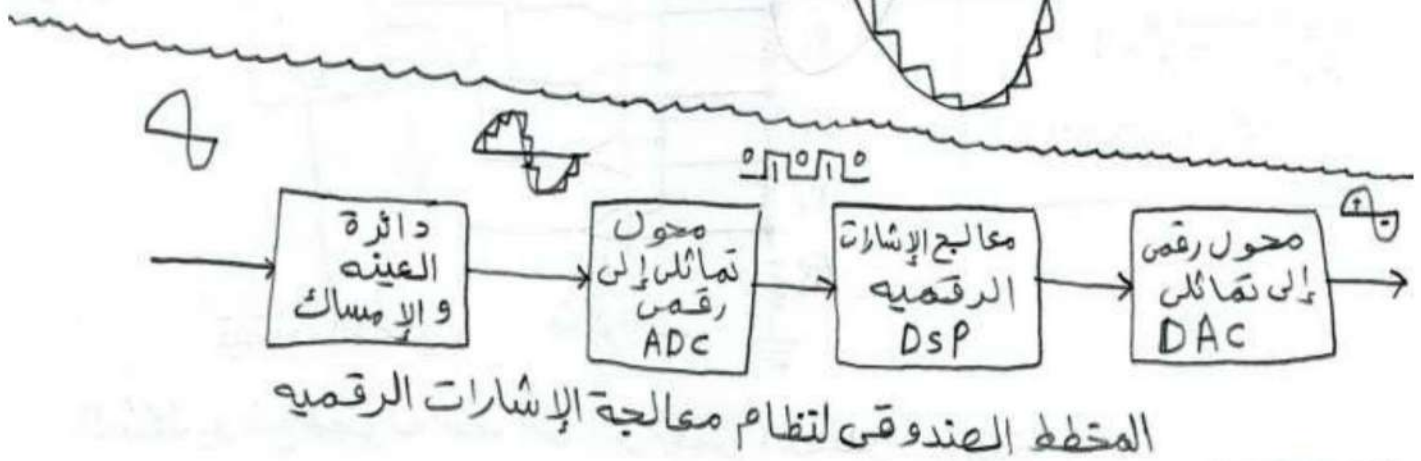 دائرة
العينه
و الإمساك
محول
تماثلى إلى
رقمى
ADC
0 1 0 1 0
معالج الإشارات
الرقميه
DSP
محول رقمى
إلى تماثلى
DAC
المخطط الصندوقى لنظام معالجة الإشارات الرقميه